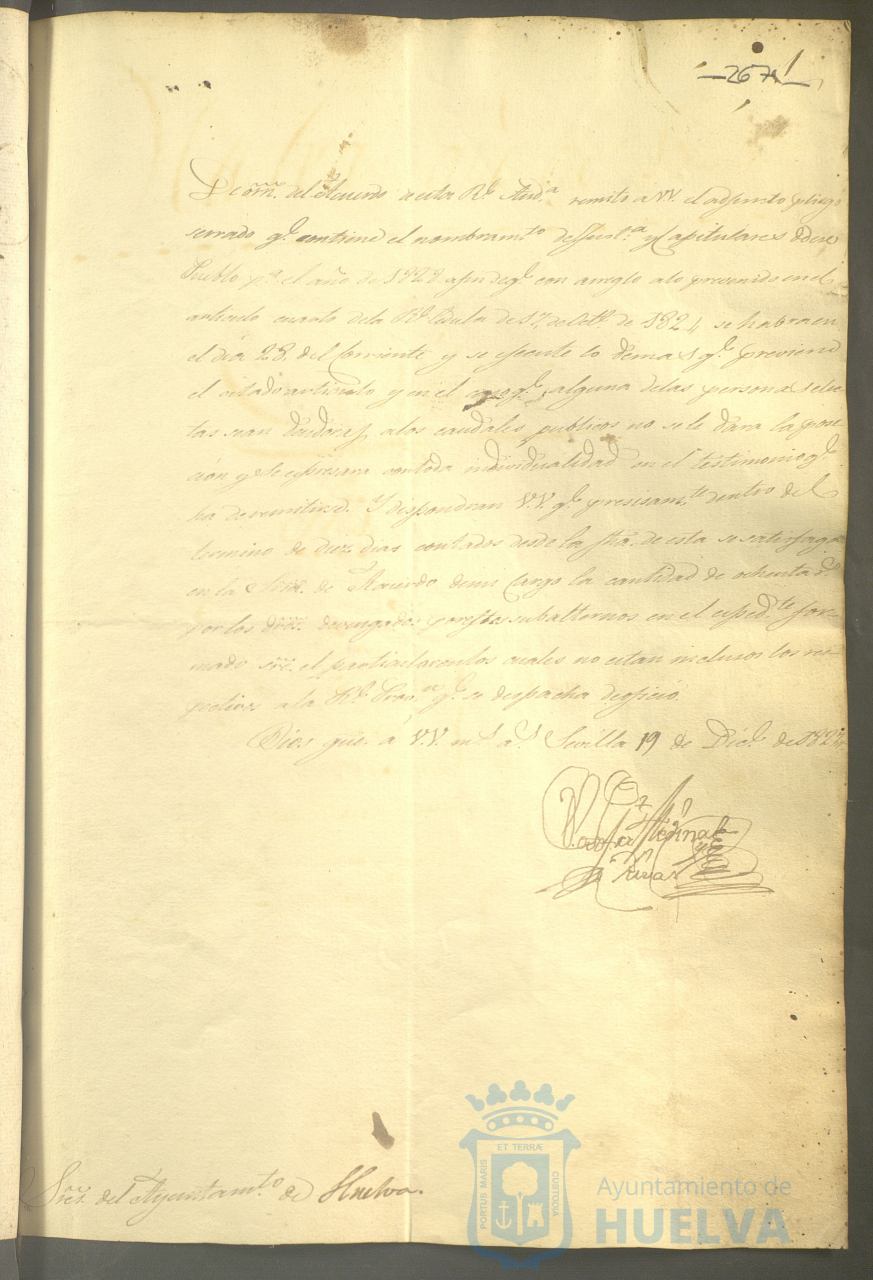 267
De orn. del Acuerdo de esta Rl. Auda. remito a VV. el adjunto pliego
serrado ql. contiene el nombramto. de Justa. y Capitulares de ese
Pueblo pa. el año de 1828 afin de ql. con arreglo alo prevenido en el
articulo cuarto dela Rl. Cedula de 17 de Octe. de 1824 se habra en
el dia 28 del Corriente y se ejecute lo demas ql. previene
el citado articulo y en el ql. alguna delas personas elec-
tas sean deudores alos caudales publicos no sele dara la pose-
ción y se espresara contoda individualidad en el testimonio ql.
ha de remitirse. Y dispondran V.V. ql. presisamte. dentro del
termino de diez dias contados desde la fha. de esta se satisfaga
en la de Acuerdo demi Cargo la cantidad de ochenta
por los dros. devengados por subalternos en el espedte. for-
mado sre. el particular en los cuales no estan inclusos los res-
pectivos a la Rl. ql. se despacha de oficio.
Dios gue. á V.V. ms. as. Sevilla 19 de Dice. de 182
Medina
Sres. del Ayuntamto. de Huelva.
ET TERRÆ
PORTUS MARIS
CUSTODIA
Ayuntamiento de
HUELVA